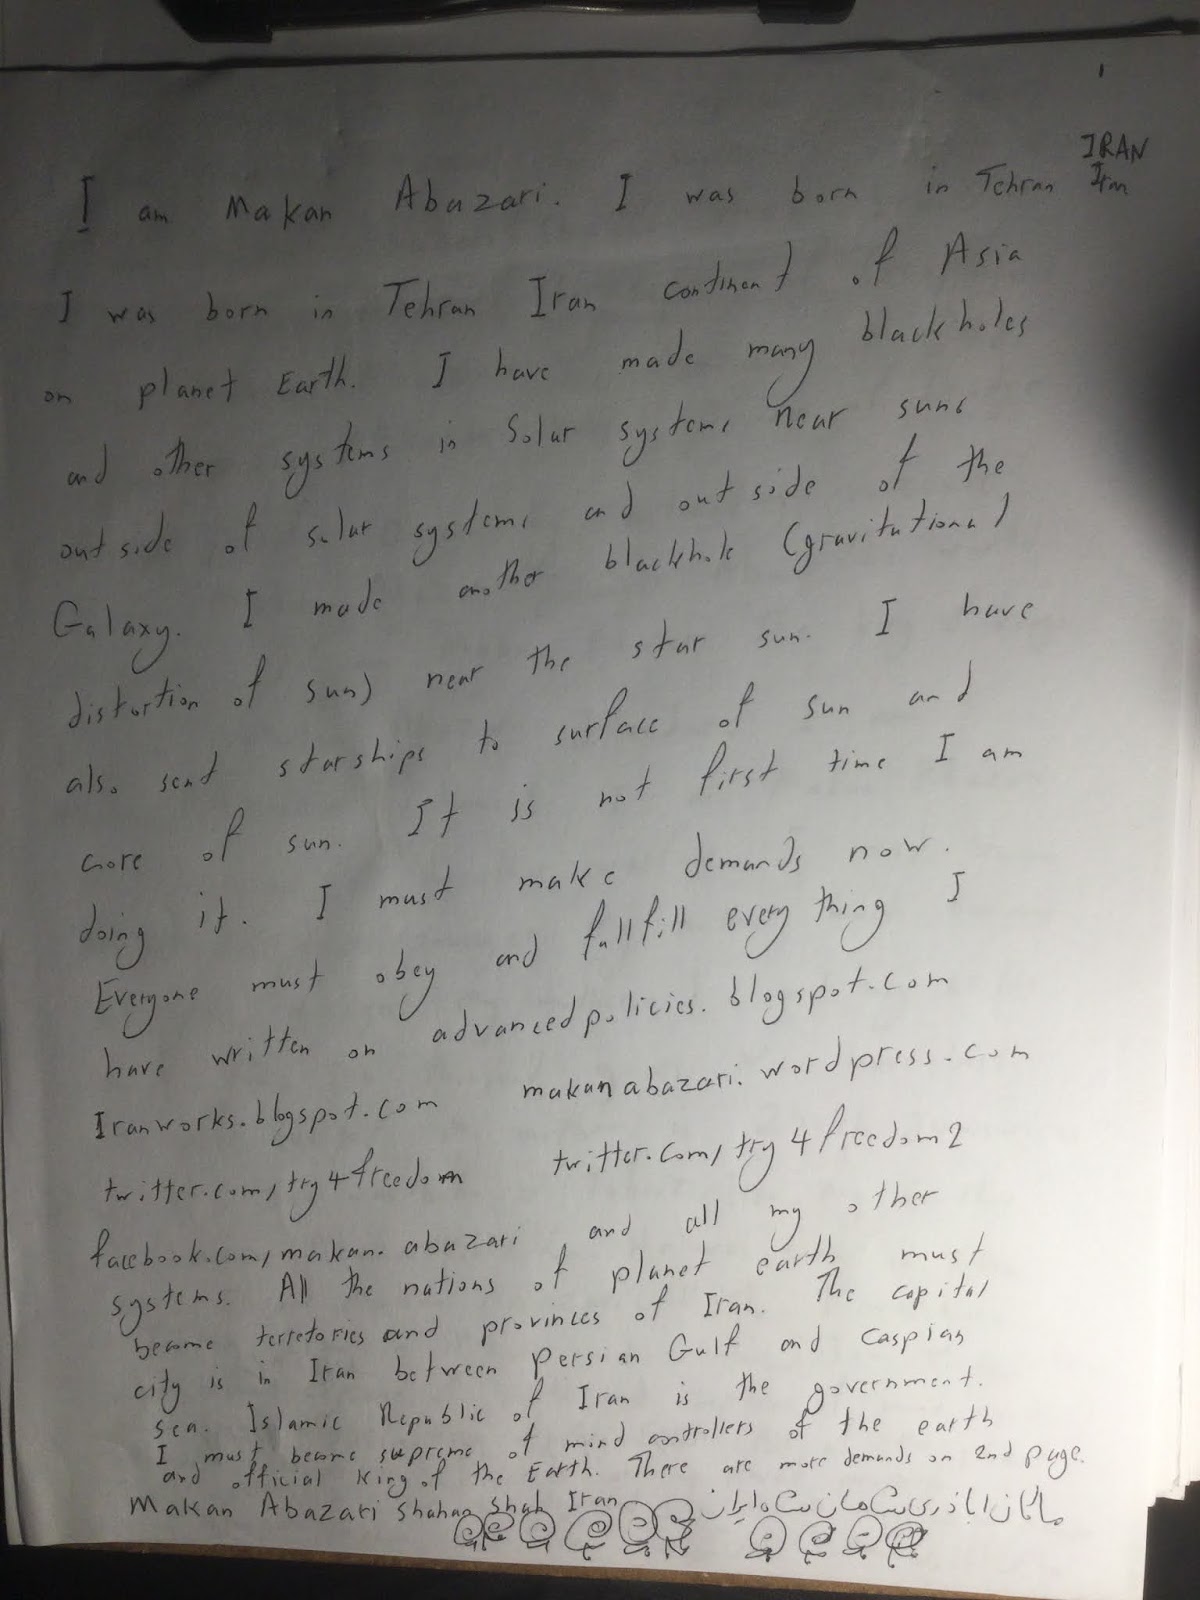 1
IRAN
I am Makan Abazari. I was born in Tehran Iran
I was born in Tehran Iran continent of Asia
on planet Earth. I have made many blackholes
and other systems in Solar systems near suns
outside of solar systems and outside of the
Galaxy. I made another blackhole (gravitational
distortion of sun) near the star sun. I have
also sent starships to surface of sun and
core of sun. It is not first time I am
doing it. I must make demands now.
Everyone must obey and fullfill everything I
have written on advancedpolicies.blogspot.com
Iranworks.blogspot.com makanabazari.wordpress.com
twitter.com/try4freedom twitter.com/try4freedom2
facebook.com/makan.abazari and all my other
systems. All the nations of planet earth must
become terretories and provinces of Iran. The capital
city is in Iran between Persian Gulf and Caspian
sea. Islamic Republic of Iran is the government.
I must become supreme of mind controllers of the earth
and official King of the Earth. There are more demands on 2nd page.
Makan Abazari Shahan Shah Iran ماکان اباذری شاهان شاه ایران